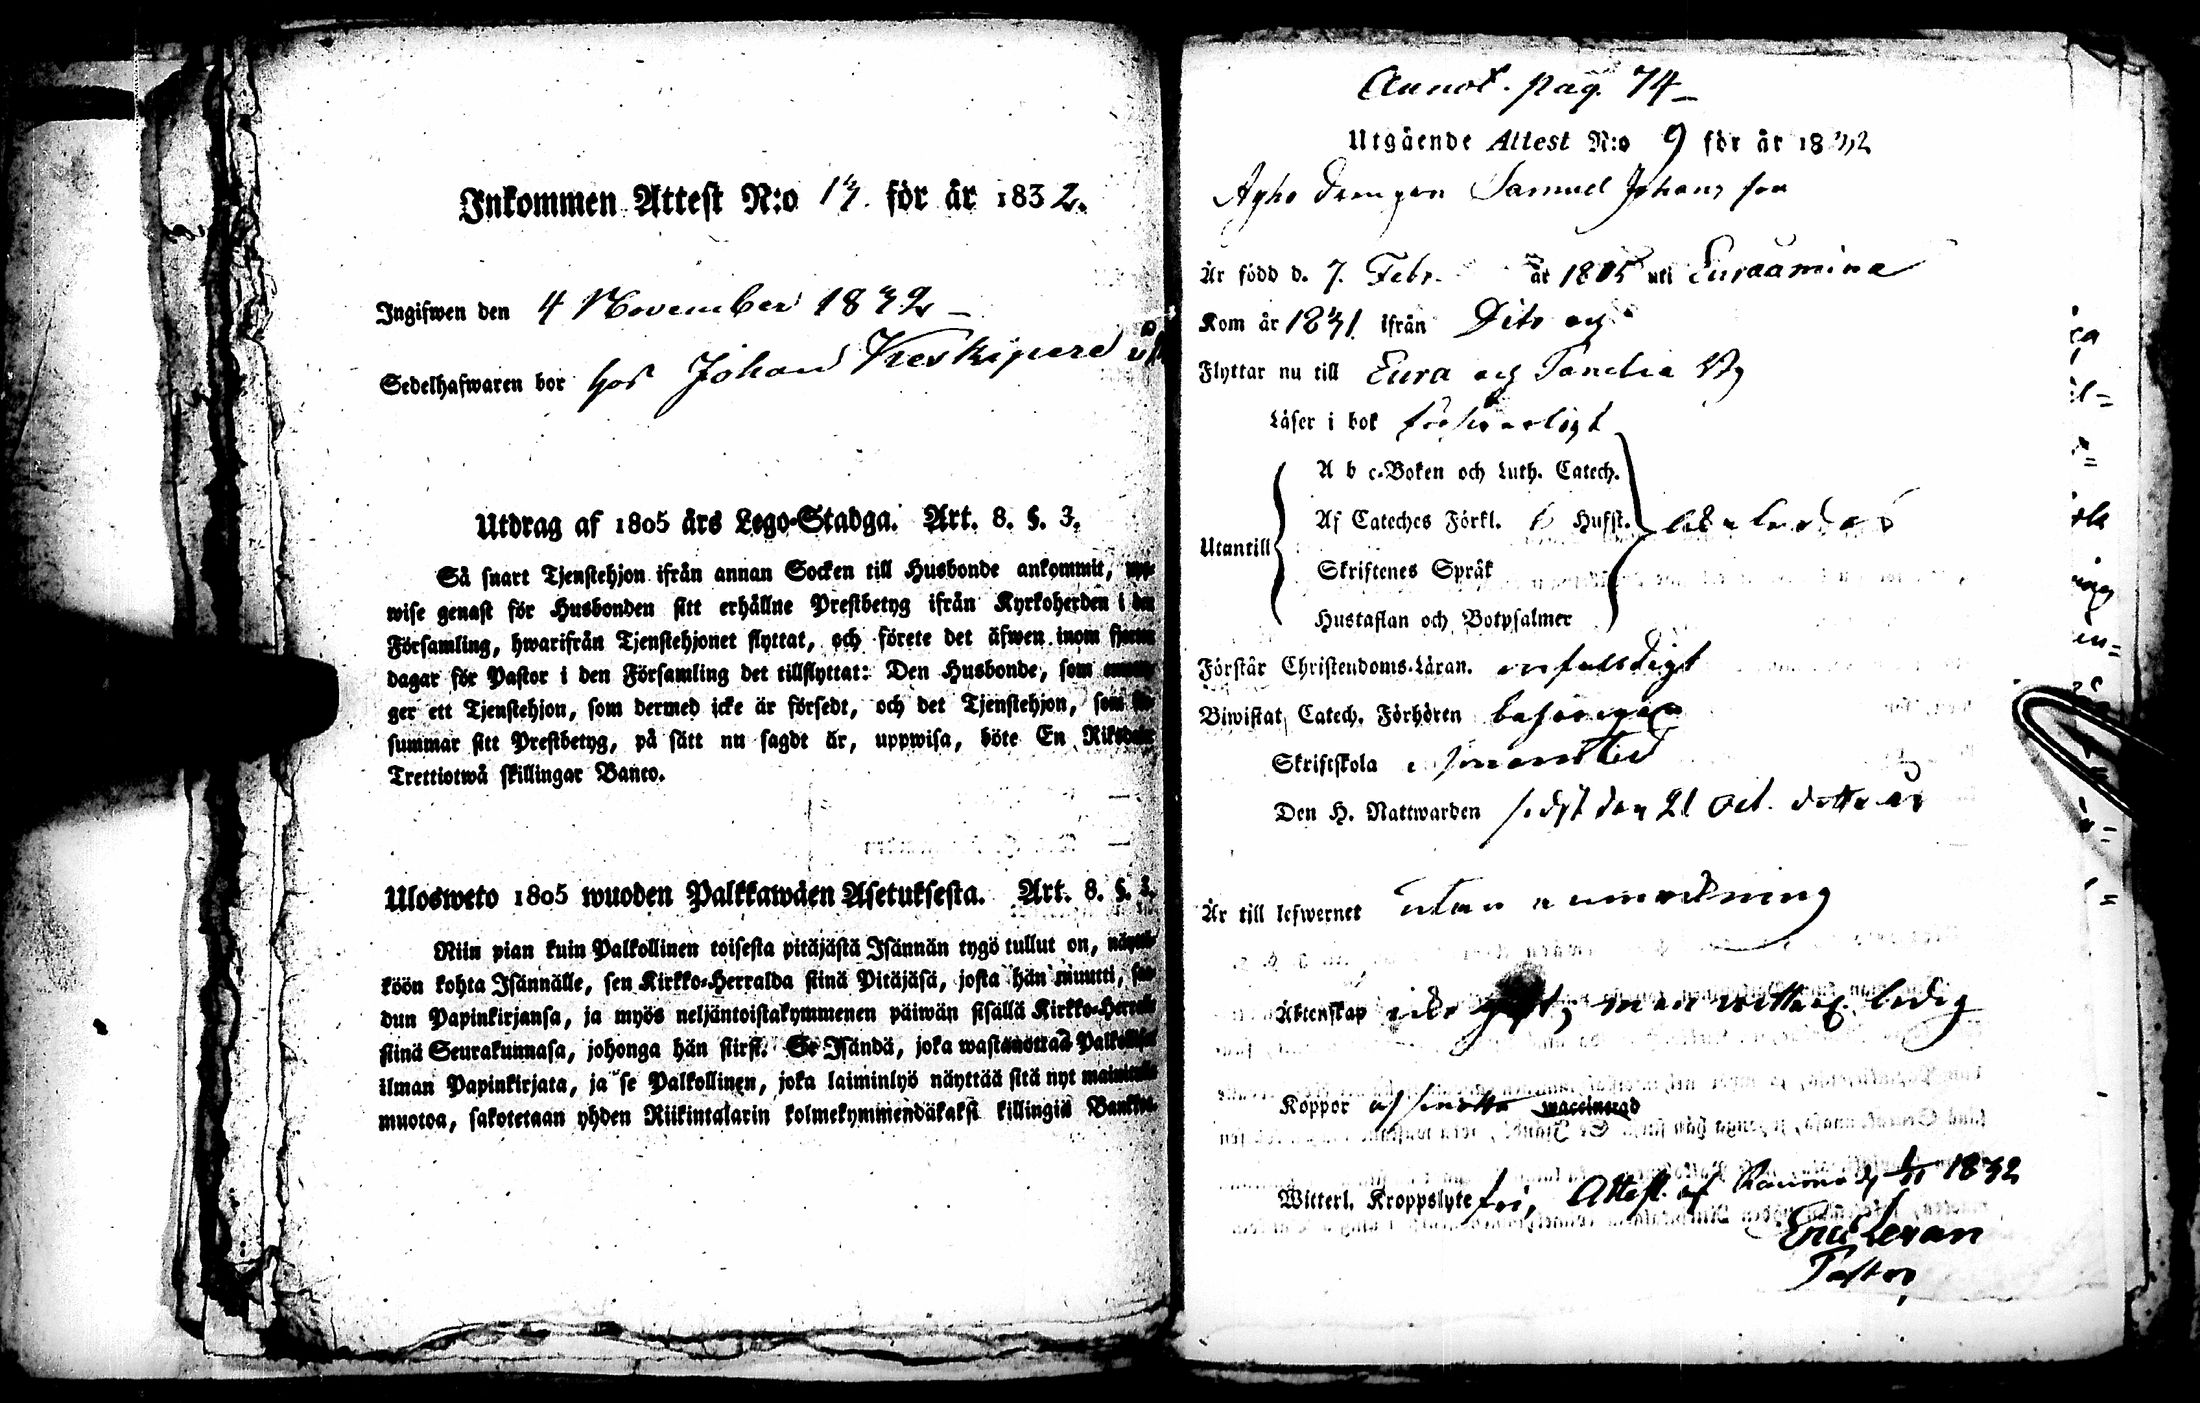 Inkommen Attest N:o 13. för år 1832.
Ingifwen den 4 November 1832 –
Sedelhafwaren bor hos Johan Keskipere
Utdrag af 1805 års Lego-Stadga. Art. 8. §. 3.
Så snart Tjenstehjon ifrån annan Socken till Husbonde ankommit,
wise genast för Husbonden sitt erhållne Prestbetyg ifrån Kyrkoherden i den
Församling, hwarifrån Tjenstehjonet flyttat, och förete det äfwen inom fjorton
dagar för Pastor i den Församling det tillflyttat: Den Husbonde, som
ger ett Tjenstehjon, som dermed icke är försedt, och det Tjenstehjon, som
summar sitt Prestbetyg, på sätt nu sagdt är, uppwisa, böte En Riksdaler
Trettiotwå skillingar Banco.
Ulosweto 1805 wuoden Palkkawäen Asetuksesta. Art. 8. §. 3.
Niin pian kuin Palkollinen toisesta pitäjästä Isännän tygö tullut on, näyttä-
köön kohta Isännälle, sen Kirkko-Herralda siinä Pitäjäsä, josta hän muutti, saa-
dun Papinkirjansa, ja myös neljäntoistakymmenen päiwän sisällä Kirkko-Herralle
siinä Seurakunnasa, johonga hän siirsi. Se Isändä, joka wastanottaa Palkollisen
ilman Papinkirjata, ja se Palkollinen, joka laiminlyö näyttää sitä nyt mainitulla
muotoa, sakotetaan yhden Riikintalarin kolmekymmendäkaksi killingiä Bankos.
Annot. pag. 74 –
Utgående Attest N:o 9 för år 1832
Drengen Samuel Johansson
Är född d. 7. Febr. år 1805 uti Euraåminne
Kom år 1831 ifrån Dito och
Flyttar nu till Eura och
Läser i bok försvarligt
A b c-Boken och Luth. Catech.
Af Cateches Förkl. 6 Hufst.
Utantill
Skriftenes Språk
Hustaflan och Botpsalmer
Förstår Christendoms-Läran. enfaldigt
Biwistat Catech. Förhören behörigen
Skriftskola
Den H. Nattwarden sidst den 21 Oct. detta år
Är till lefwernet utan anmärkning
Äktenskap icke gift, men ledig
Koppor waccinerad
Witterl. Kroppslyte fri, Attest. af Raumo d. 1/11 1832
Eric Levan
Pastor